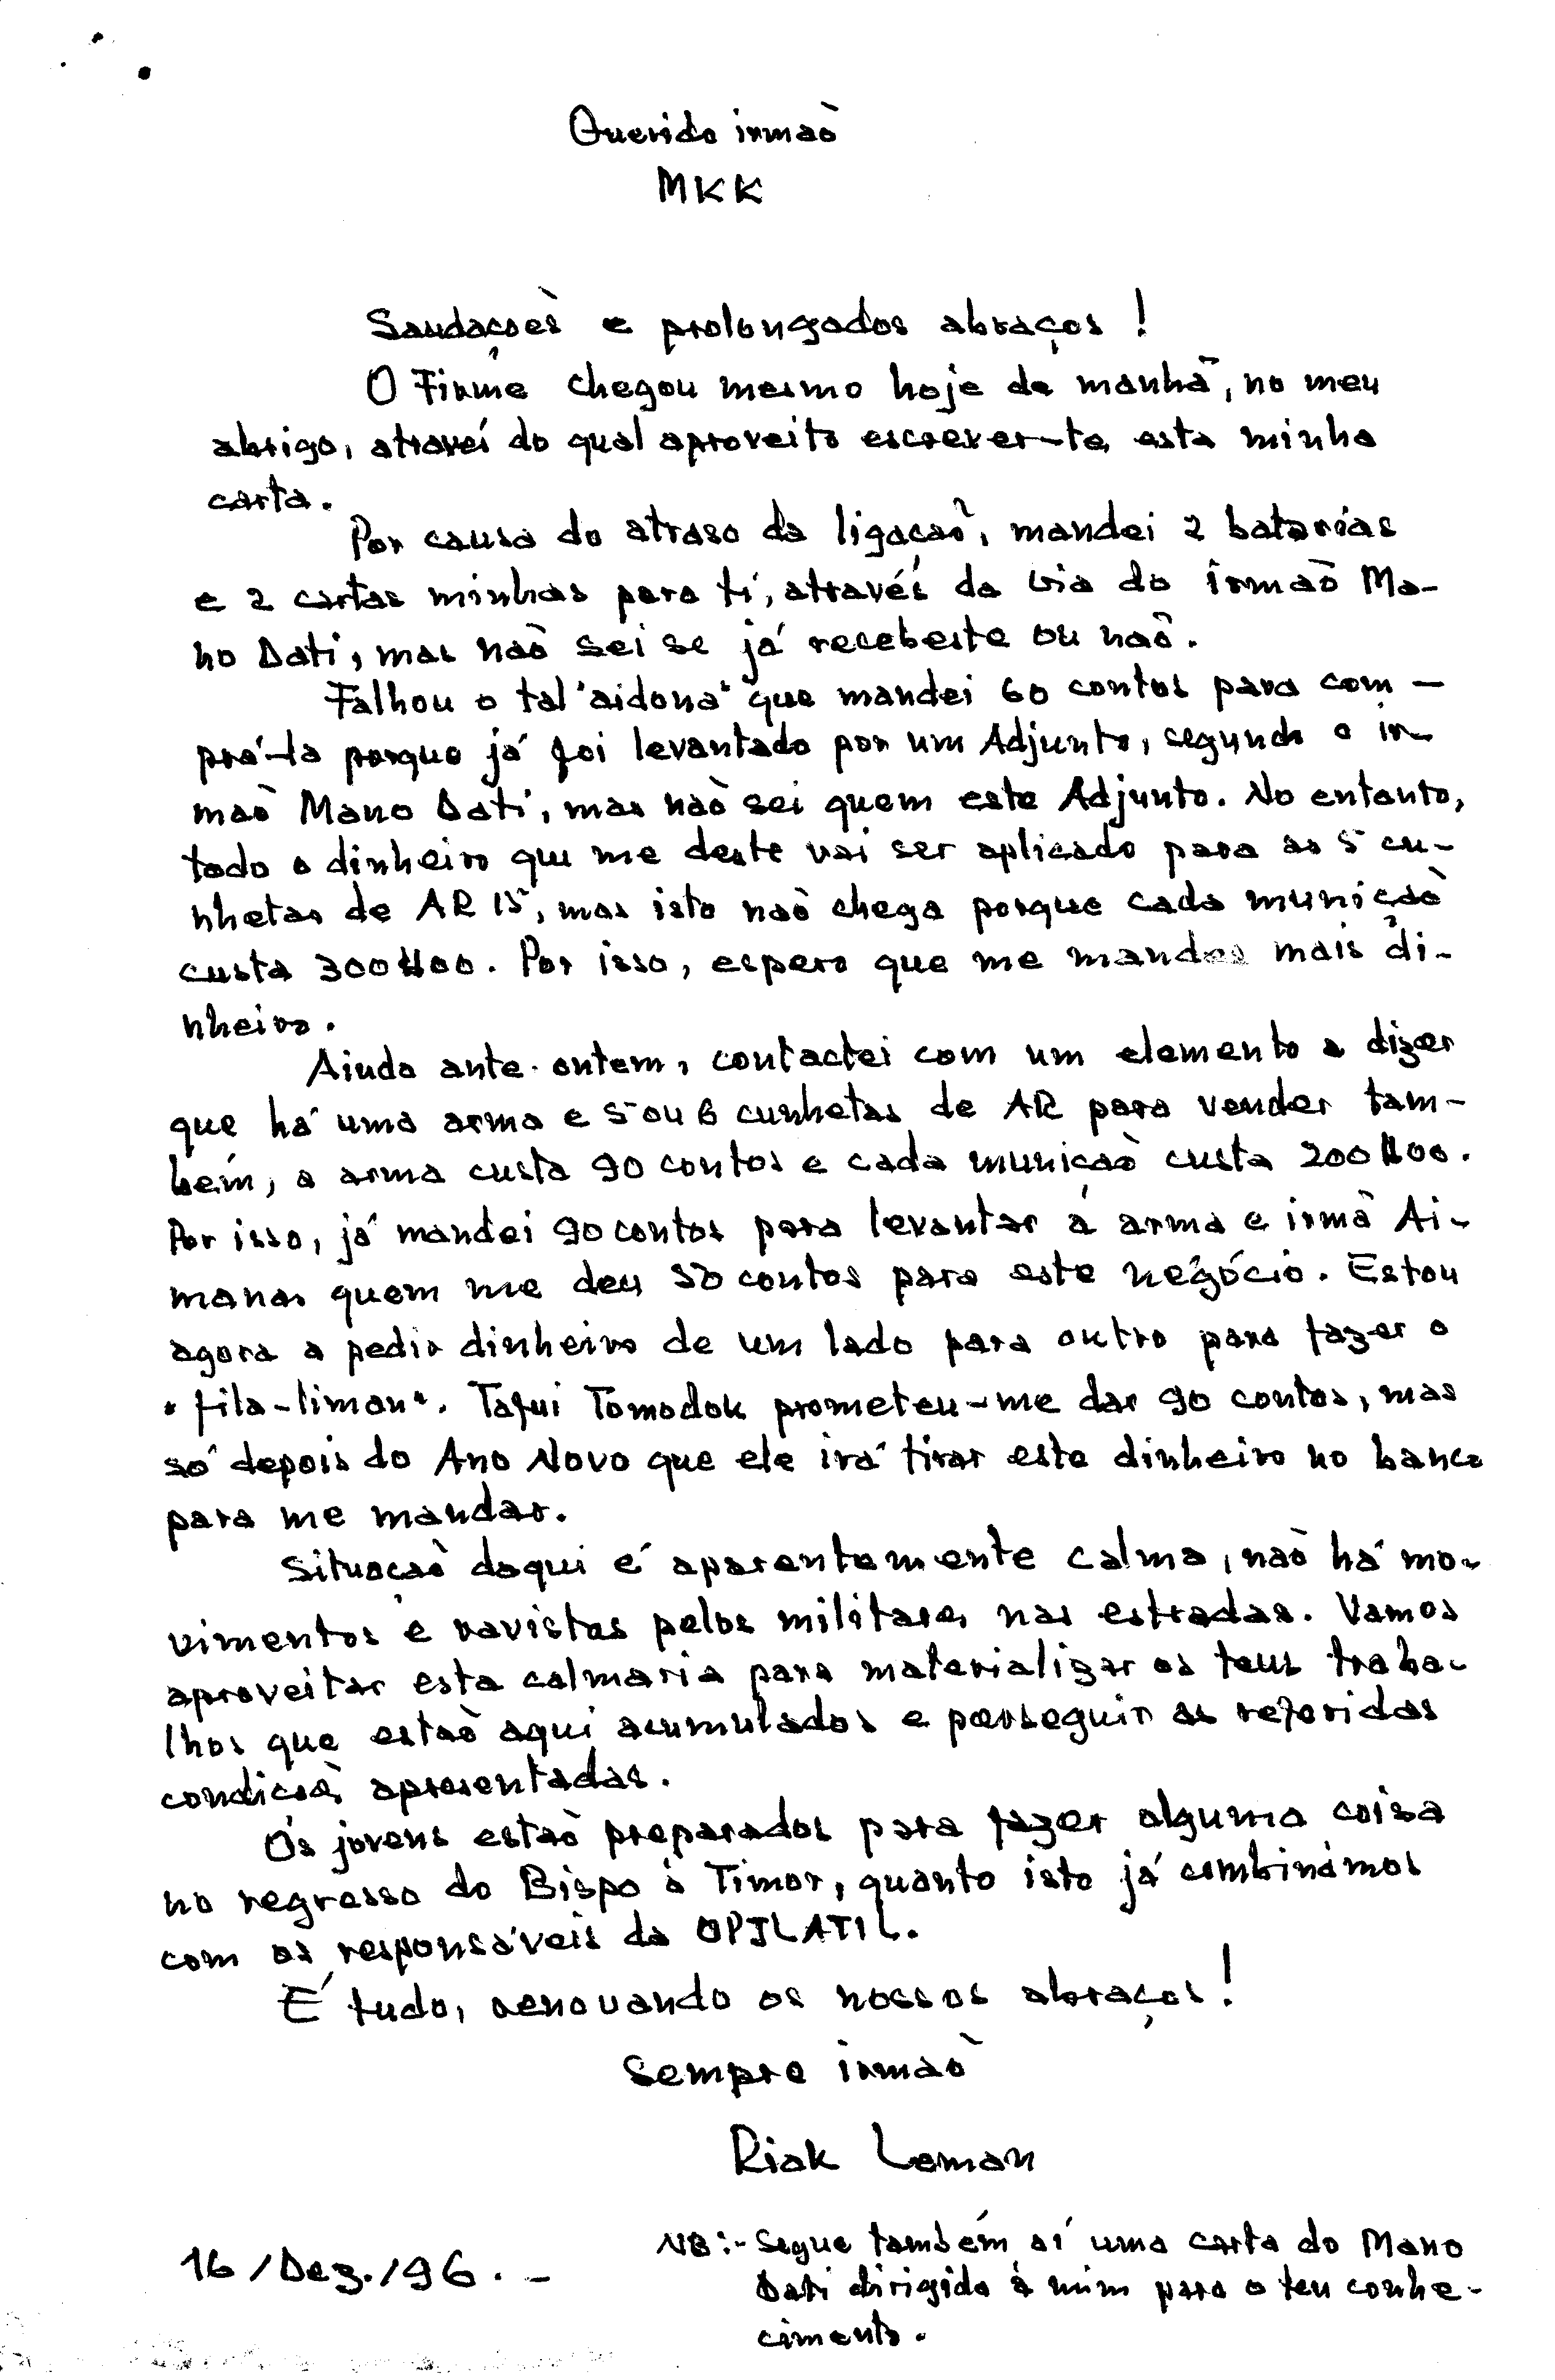 Querido irmaõ
MKK
Saudaçoẽs e prolongados abraços!
O Firme chegou mesmo hoje de manhã, no meu
abrigo, atraveí do qual aproveito escrever-te, esta minha
carta.
Por causa do atraso da ligaçaõ, mandei 2 batarias
e 2 cartas minhas para ti, através da via do irmaõ Ma-
no Dati, mas naõ sei se já recebeste ou naõ.
Falhou o tal "aidona" que mandei 60 contos para com-
prá-la porque já foi levantado por um Adjunto, segundo o ir-
maõ Mano Dati, mas naõ sei quem este Adjunto. No entanto,
todo o dinheiro que me deste vai ser aplicado para as 5 cu-
nhetas de AR 15, mas isto naõ chega porque cada muniçaõ
custa 300$00. Por isso, espero que me mandes mais di-
nheiro.
Ainda ante-ontem, contactei com um elemento a dizer
que há uma arma e 5 ou 6 cunhetas de AR para vender tam-
bém, a arma custa 90 contos e cada muniçaõ custa 200$00.
Por isso, já mandei 90 contos para levantar a arma e irmã Ai-
manas quem me deu 50 contos para este negócio. Estou
agora a pedir dinheiro de um lado para outro para fazer o
"fila-liman". Tafui Tomodok prometeu-me dar 90 contos, mas
só depois do Ano Novo que ele irá tirar este dinheiro no banco
para me mandar.
Situaçaõ daqui é aparentemente calma, naõ há mo-
vimentos e ravistas pelos militares nas estradas. Vamos
aproveitar esta calmaria para materializar os teus traba-
lhos que estaõ aqui acumulados e perseguir as referidas
condiçoẽs apresentadas.
Os jovens estaõ preparados para fazer alguma coisa
no regresso do Bispo à Timor, quanto isto já combinámos
com os responsáveis da OPJLATIL.
É tudo, renovando os nossos abraços!
Sempre irmaõ
Riak Leman
16/Dez./96.-
NB:- Segue também aí uma carta do Mano
Dati dirigida à mim para o teu conhe-
cimento.